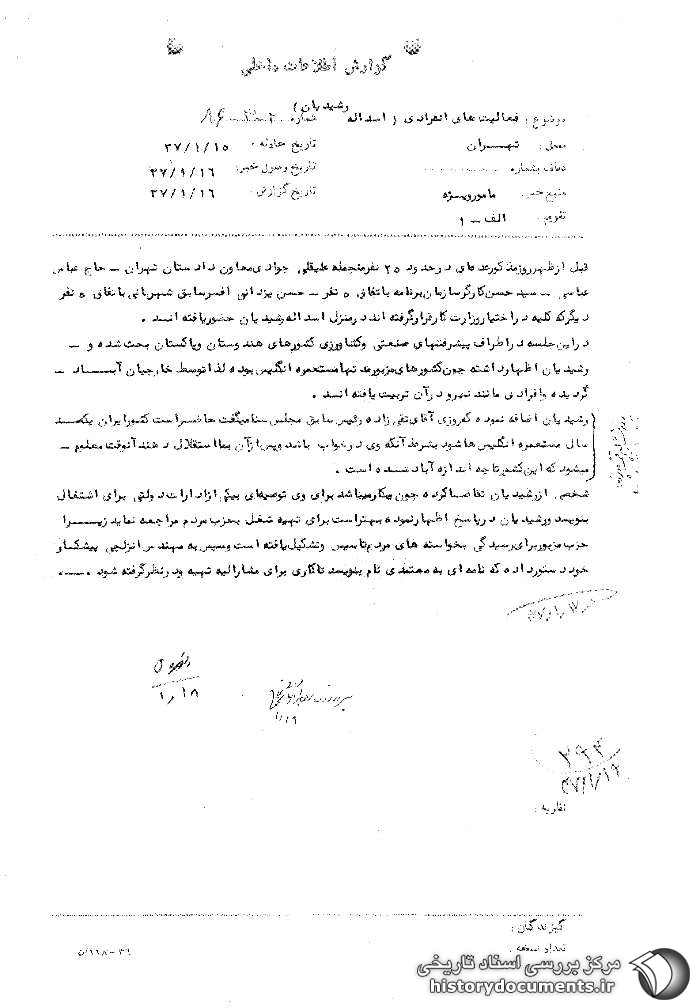 گزارش اطلاعات داخلی
موضوع : فعالیت های انفرادی ( اسداله رشیدیان ) شماره
محل : تهران تاریخ حادثه : ۳۷/۱/۱۵
عطف بشماره تاریخ وصول خبر: ۳۷/۱/۱۶
منبع خبر مامور ویژه تاریخ گزارش : ۳۷/۱/۱۶
تقویم : الف - ۱
قبل از ظهر روز مذکور عده ای در حدود ۲۵ نفر منجمله علیقلی جوادی معاون دادستان تهران - حاج عباس
عباسی - سید حسن کارگر سازمان برنامه باتفاق ۵ نفر - حسن یزدانی افسر سابق شهربانی باتفاق ۵ نفر
دیگر که کلیه در اختیار وزارت کار قرار گرفته اند در منزل اسداله رشیدیان حضور یافته اند .
در این جلسه در اطراف پیشرفتهای صنعتی و کشاورزی کشورهای هندوستان و پاکستان بحث شده و -
رشیدیان اظهار داشته چون کشورهای مزبور مدتها مستعمره انگلیس بوده لذا توسط خارجیان آباد -
گردیده و افرادی مانند نهرو در آن تربیت یافته اند .
رشیدیان اضافه نموده که روزی آقای تقی زاده رئیس سابق مجلس سنا میگفت حاضر است کشور ایران یکصد
سال مستعمره انگلیس ها شود بشرط آنکه وی در خواب باشد و پس از آن بما استقلال دهند آنوقت معلوم -
میشود که این کشور تا چه اندازه آباد شده است .
شخصی از رشیدیان تقاضا کرده چون بیکار میباشد برای وی توصیه ای بیکی از ادارات دولتی برای اشتغال
بنویسد و رشیدیان در پاسخ اظهار نموده بهتر است برای تهیه شغل بحزب مردم مراجعه نماید زیرا
حزب مزبور برای رسیدگی بخواسته های مردم تاسیس و تشکیل یافته است و سپس به مهندس انزلچی پیشکار
خود دستور داده که نامه ای به معتضدی نام بنویسد تا کاری برای مشارالیه تهیه و در نظر گرفته شود .
۱/۱۸
۱/۱۹
۳۹۴
۳۷/۱/۱۹
نظریه :
گیرندگان :
تعداد نسخه :
۵/۱۱۸-۳۶
مرکز بررسی اسناد تاریخی
historydocuments.ir